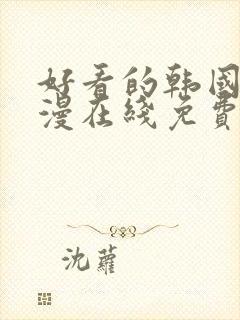 好看的韩国
漫在线免费
沈萝